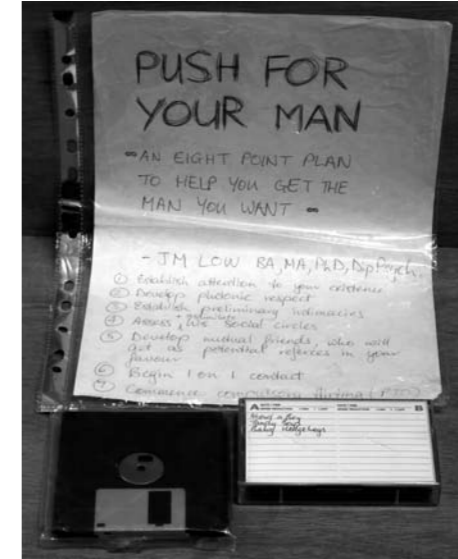 PUSH FOR
YOUR MAN
-AN EIGHT POINT PLAN
TO HELP YOU GET THE
MAN YOU WANT -
- JM LOW BA, MA, PhD, Dip Psych,
① Establish attention to your existence
② Develop platonic respect
③ Establish preliminary intimacies
④ Assess his social circles
⑤ Develop mutual friends, who will
act as potential referees in your
favour
⑥ Begin 1 on 1 contact
⑦ Commence compulsory flirting
A
B
Baby Hedgehogs